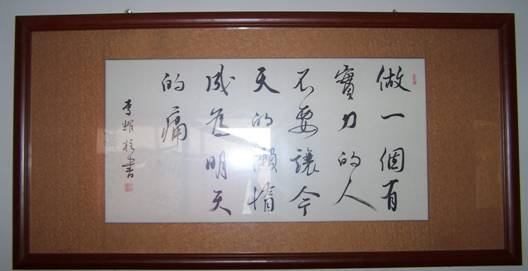 做一個有
實力的人
不要讓今
天的懶惰
成為明天
的痛
李耀書